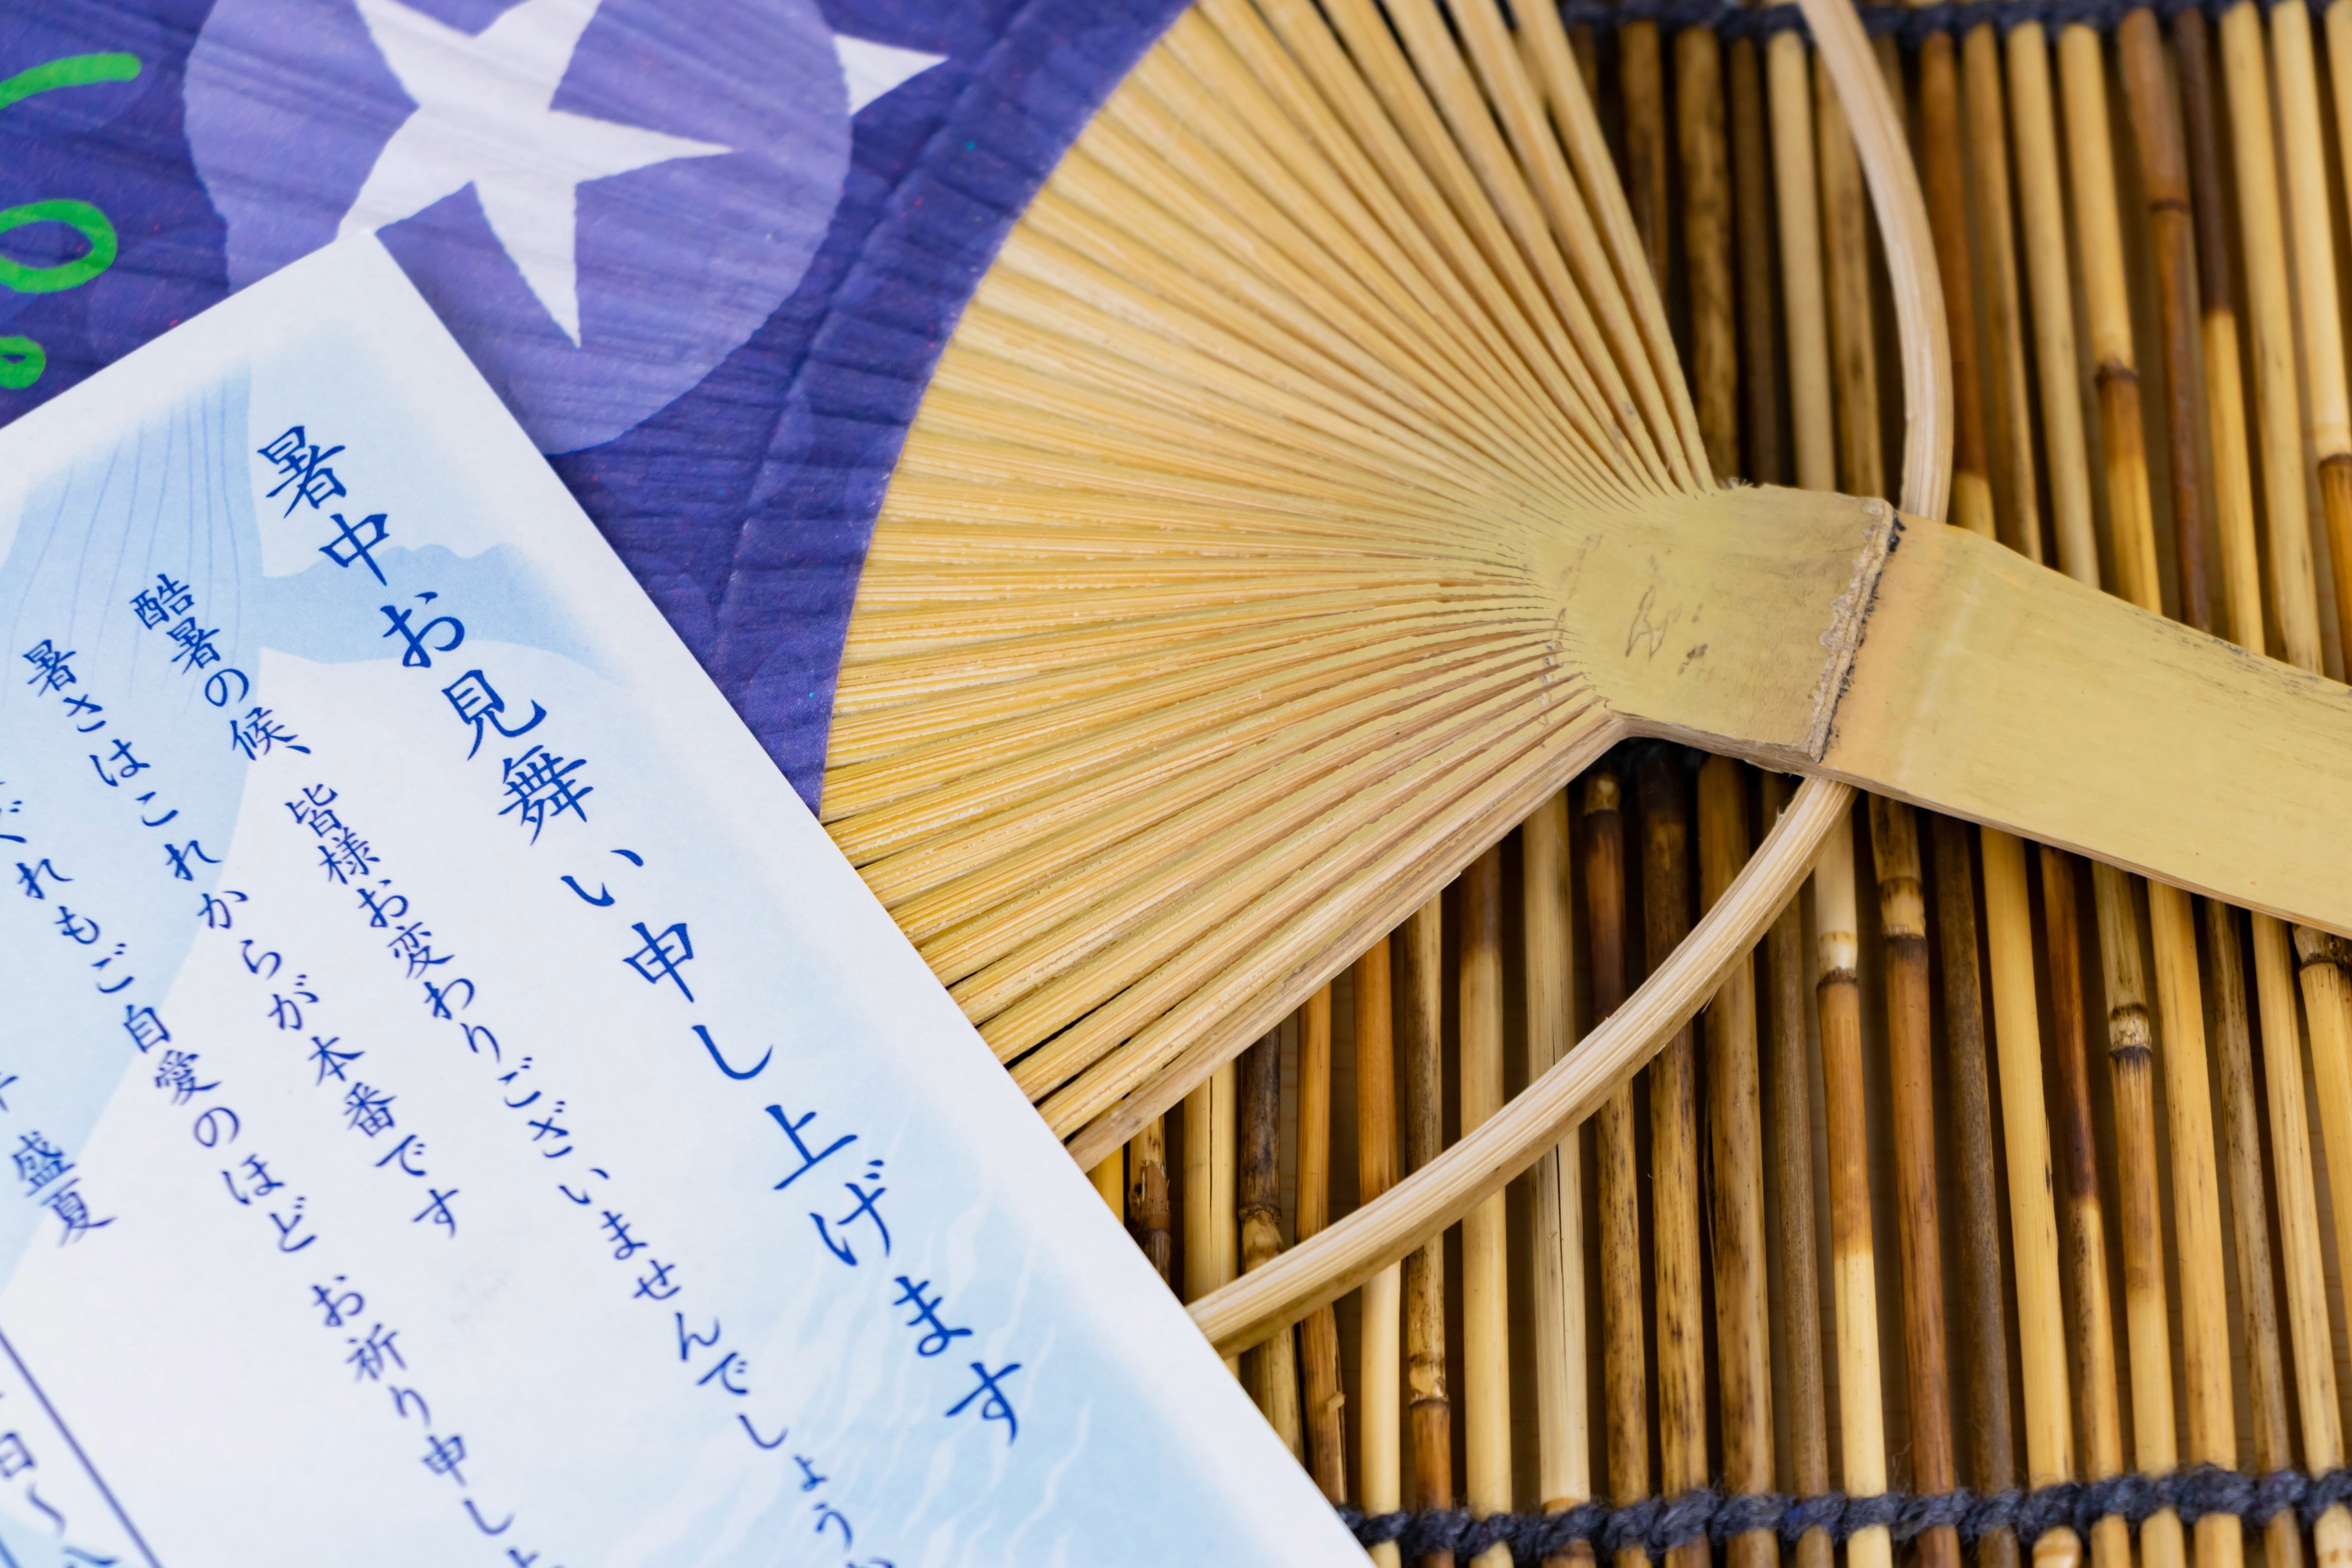 暑中お見舞い申し上げます
酷暑の候、皆様お変わりございませんでしょうか
暑さはこれからが本番です
ぐれもご自愛のほど お祈り申し上
盛夏
日〜八